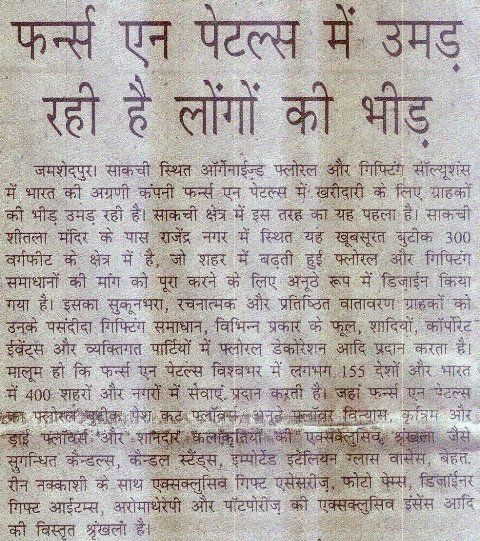 फर्न्स एन पेटल्स में उमड़
रही है लोंगों की भीड़
जमशेदपुर। साकची स्थित ऑर्गेनाईज्ड फ्लोरल और गिफ्टिंग सॉल्यूशंस
में भारत की अग्रणी कंपनी फर्न्स एन पेटल्स में खरीदारी के लिए ग्राहकों
की भीड़ उमड़ रही है। साकची क्षेत्र में इस तरह का यह पहला है। साकची
शीतला मंदिर के पास राजेंद्र नगर में स्थित यह खूबसूरत बुटीक 300
वर्गफीट के क्षेत्र में है, जो शहर में बढ़ती हुई फ्लोरल और गिफ्टिंग
समाधानों की मांग को पूरा करने के लिए अनूठे रूप में डिजाईन किया
गया है। इसका सुकूनभरा, रचनात्मक और प्रतिष्ठित वातावरण ग्राहकों को
उनके पसंदीदा गिफ्टिंग समाधान, विभिन्न प्रकार के फूल, शादियों, कॉर्पोरेट
ईवेंट्स और व्यक्तिगत पार्टियों में फ्लोरल डेकोरेशन आदि प्रदान करता है।
मालूम हो कि फर्न्स एन पेटल्स विश्वभर में लगभग 155 देशों और भारत
में 400 शहरों और नगरों में सेवाएं प्रदान करती है। जहां फर्न्स एन पेटल्स
का फ्लोरल बुटीक फ्रेश कट फ्लॉवर्स अनूठे फ्लॉवर विन्यास, कृत्रिम और
ड्राई फ्लॉवर्स और शानदार कलाकृतियों की एक्सक्लुसिव श्रृंखला जैसे
सुगन्धित कैन्डल्स, कैन्डल स्टैंड्स, इम्पोर्टेड इटेलियन ग्लास वासेस, बेहत.
रीन नक्काशी के साथ एक्सक्लुसिव गिफ्ट एसेसरीज, फोटो फेम्स, डिजाईनर
गिफ्ट आईटम्स, अरोमाथेरेपी और पॉटपोरीज् की एक्सक्लुसिव इंसेंस आदि
की विस्तृत श्रृंखला है।